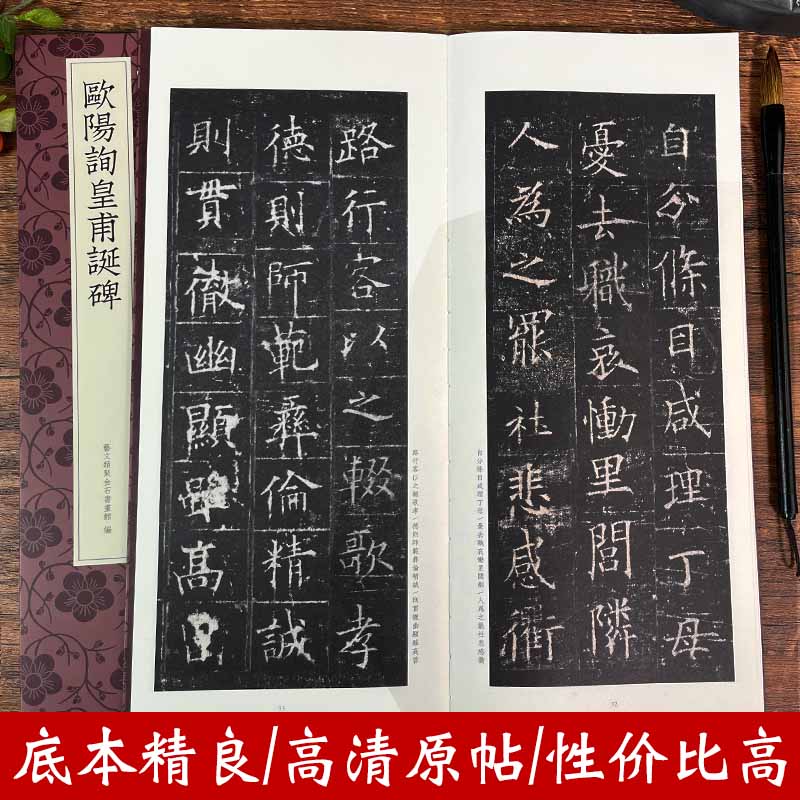 歐陽詢皇甫誕碑
藝文類聚金石書畫館 編
自分條目咸理丁母
憂去職哀慟里閭隣
人為之罷社悲感衢
自分條目咸理丁母/憂去職哀慟里閭鄰/人爲之罷社悲感衢
32
路行客以之輟歌孝
德則師範彝倫精誠
則貫徹幽顯雖高
路行客以之輟歌孝/德則師範彝倫精誠/則貫徹幽顯雖高曾
33
底本精良/高清原帖/性价比高